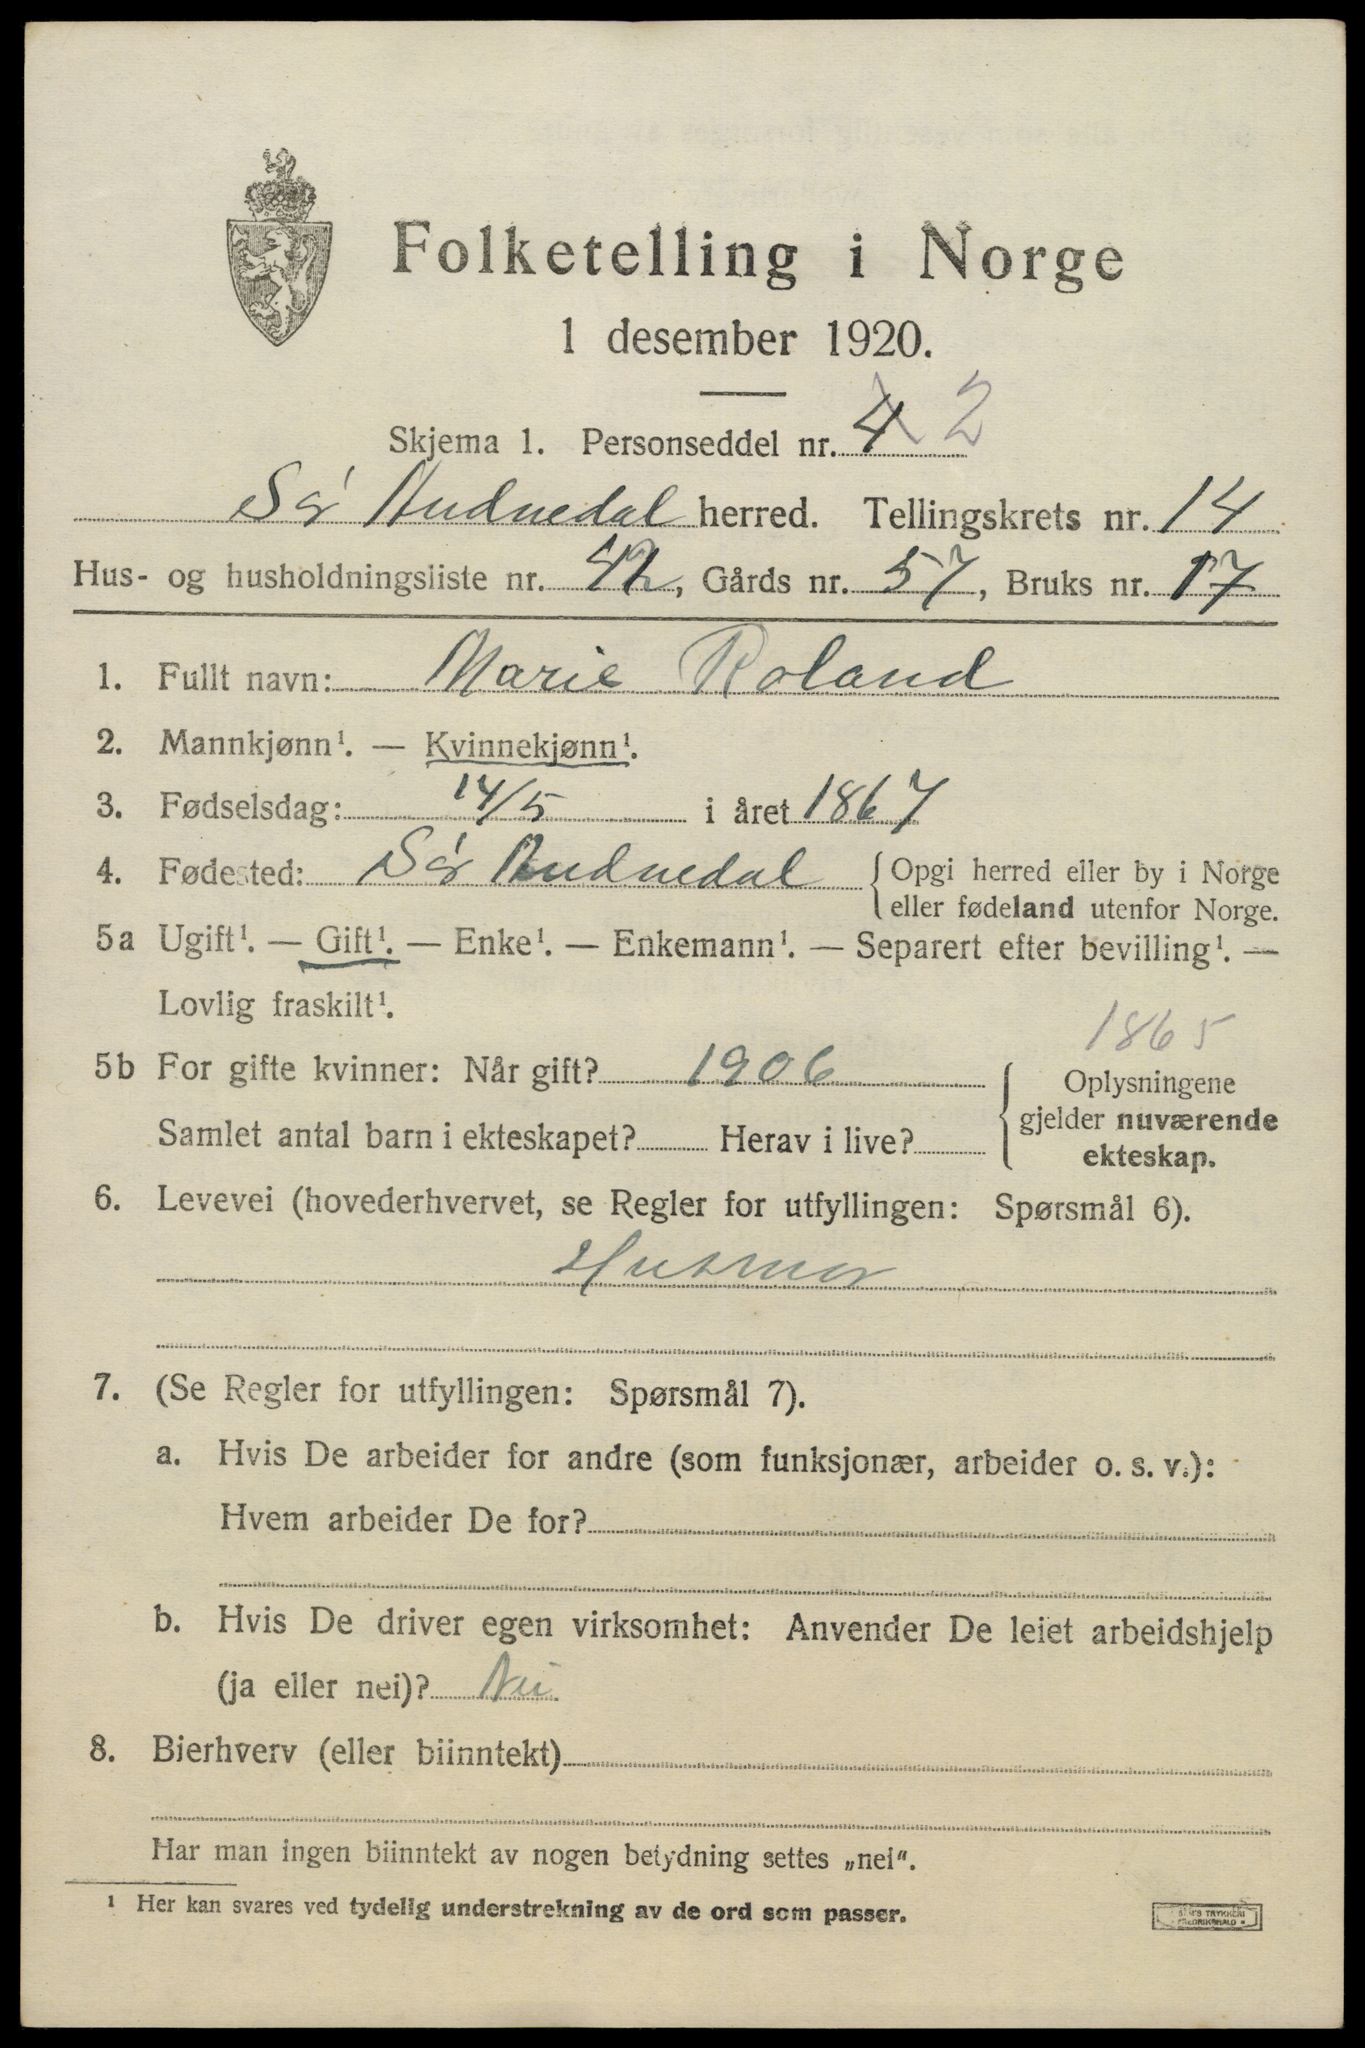 Folketelling i Norge
1 desember 1920.
Skjema 1. Personseddel nr. 4 2
Sør Audnedal herred. Tellingskrets nr. 14
Hus- og husholdningsliste nr. 42, Gårds nr. 57, Bruks nr. 17
1. Fullt navn: Marie Roland
2. Mannkjønn¹. — Kvinnekjønn¹.
3. Fødselsdag: 14/5 i året 1867
4. Fødested: Sør Audnedal {Opgi herred eller by i Norge
eller fødeland utenfor Norge.
5a Ugift¹. — Gift¹. — Enke¹. — Enkemann¹. — Separert efter bevilling¹. —
Lovlig fraskilt¹.
1865
5b For gifte kvinner: Når gift? 1906
Samlet antal barn i ekteskapet? Herav i live?
Oplysningene
gjelder nuværende
ekteskap.
6. Levevei (hovederhvervet, se Regler for utfyllingen: Spørsmål 6).
Husmor
7. (Se Regler for utfyllingen: Spørsmål 7).
a. Hvis De arbeider for andre (som funksjonær, arbeider o. s. v.):
Hvem arbeider De for?
b. Hvis De driver egen virksomhet: Anvender De leiet arbeidshjelp
(ja eller nei)? Nei
8. Bierhverv (eller biinntekt)
Har man ingen biinntekt av nogen betydning settes „nei".
¹ Her kan svares ved tydelig understrekning av de ord som passer.
TRYKKERI
FREDRIKSHALD